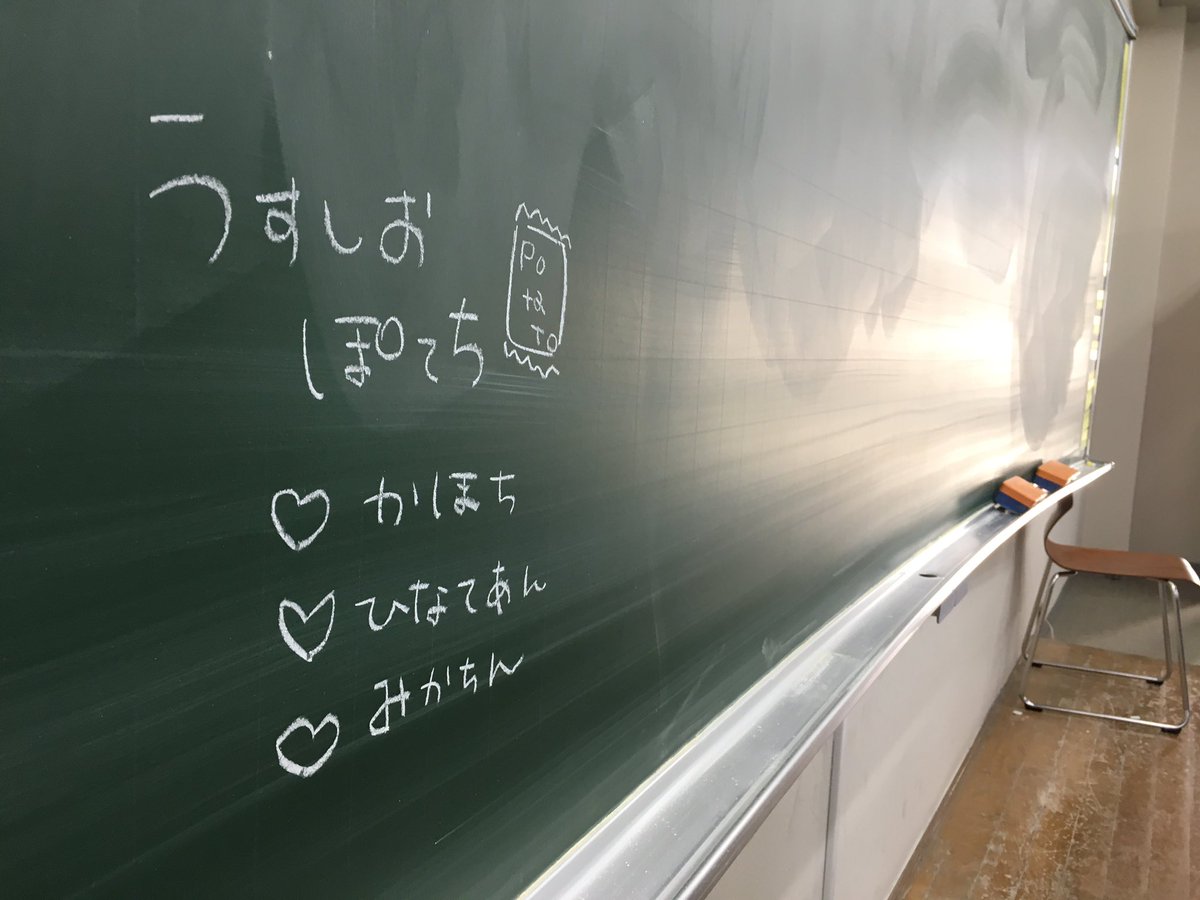 うすしお
ぽてち
Po
ta
To
♡ かほち
♡ ひなてあん
♡ みかちん